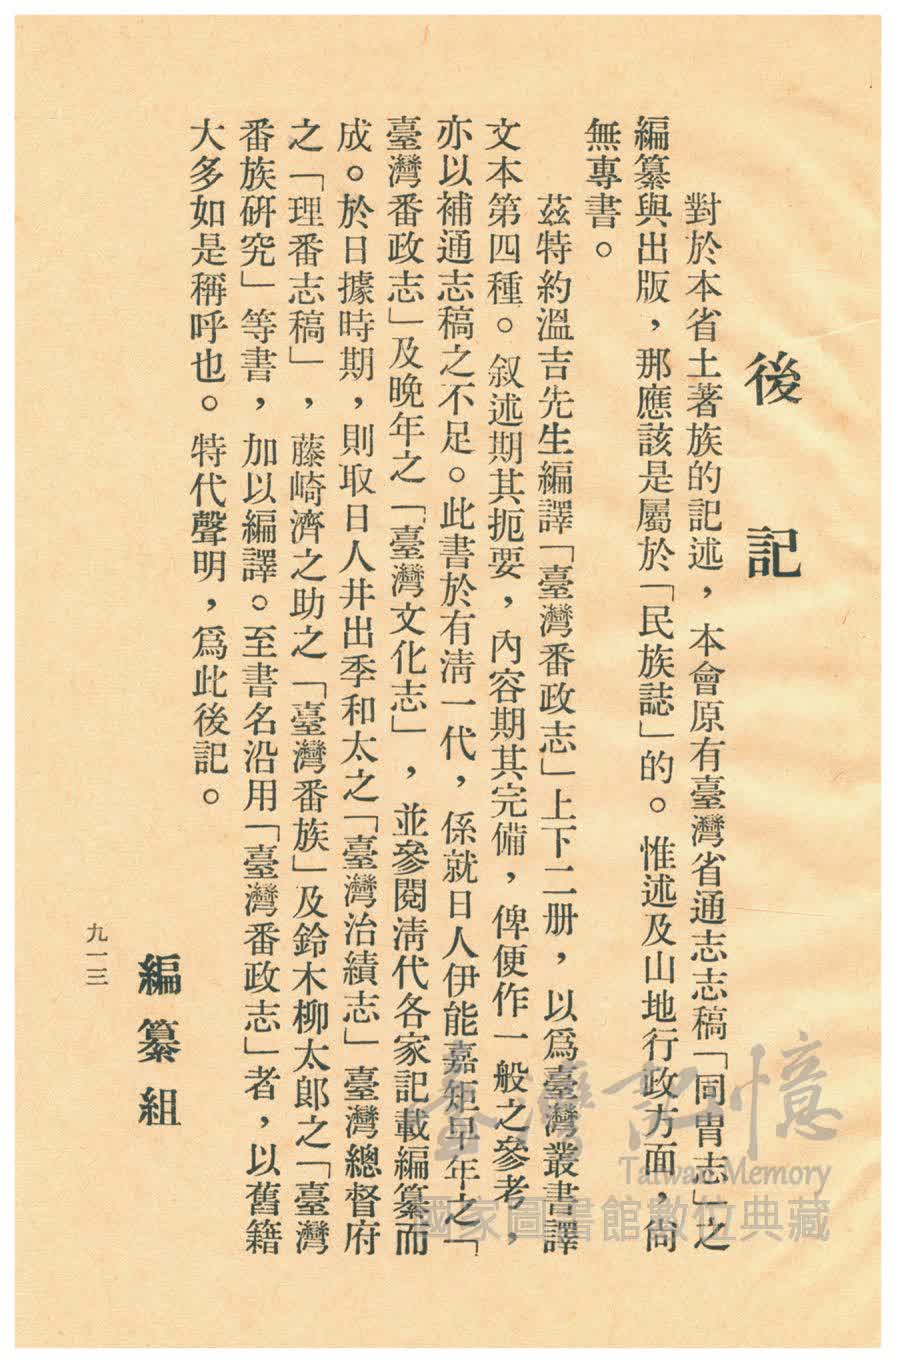 後記
對於本省土著族的記述，本會原有臺灣省通志志稿「同冑志」之
編纂與出版，那應該是屬於「民族誌」的。惟述及山地行政方面，尚
無專書。
茲特約溫吉先生編譯「臺灣番政志」上下二册，以爲臺灣叢書譯
文本第四種。叙述期其扼要，內容期其完備，俾便作一般之參考，
亦以補通志稿之不足。此書於有清一代，係就日人伊能嘉矩早年之「
臺灣番政志」及晚年之「臺灣文化志」，並參閱清代各家記載編纂而
成。於日據時期，則取日人井出季和太之「臺灣治績志」臺灣總督府
之「理番志稿」，藤崎濟之助之「臺灣番族」及鈴木柳太郎之「臺灣
番族研究」等書，加以編譯。至書名沿用「臺灣番政志」者，以舊籍
大多如是稱呼也。特代聲明，爲此後記。
編纂組
九一三
臺灣記憶
Taiwan Memory
國家圖書館數位典藏